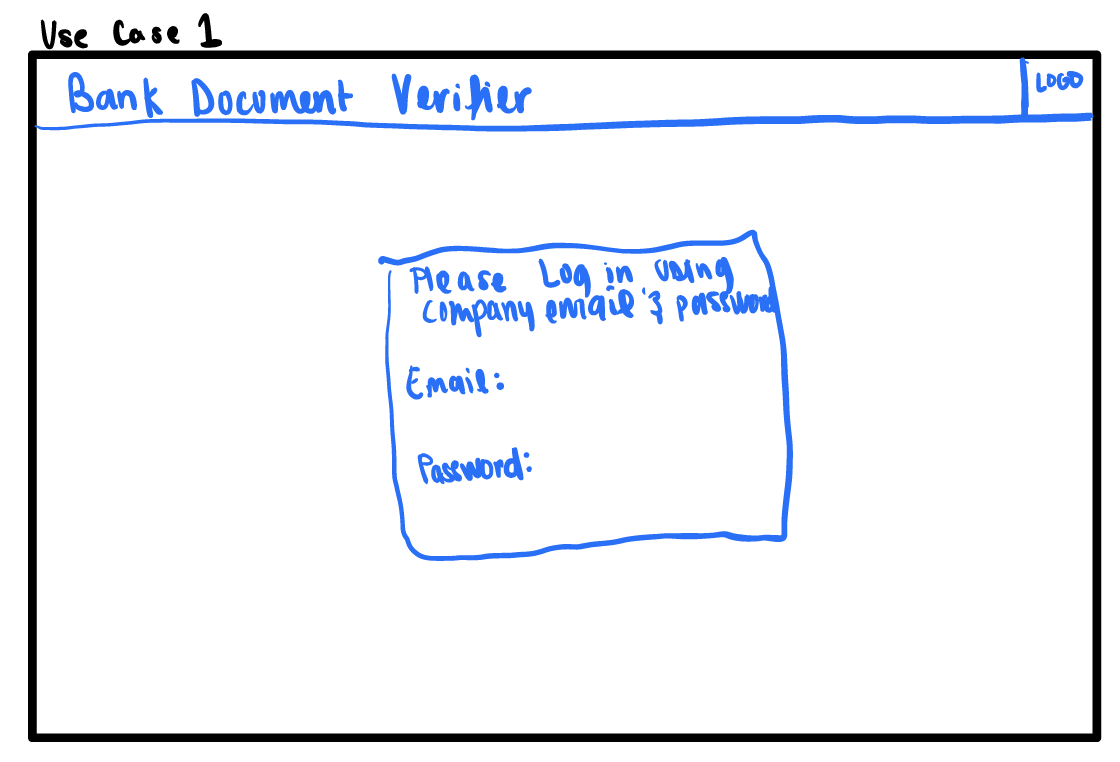 Use Case 1
Bank Document Verifier
LOGO
Please Log in using
company email & password
Email:
Password: